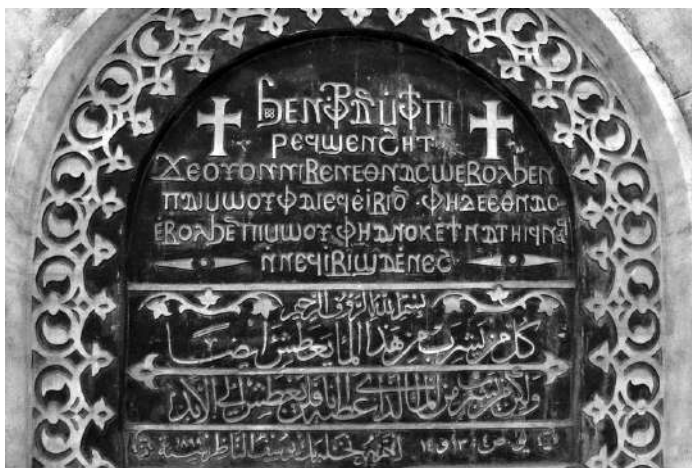 ϧⲉⲛ ⲫ ⲡⲓ
ⲣⲉϥϣⲉⲛϩⲏⲧ
ϫⲉⲟⲩⲟⲛⲛⲓⲃⲉⲛⲉⲑⲛⲁⲥⲱⲉⲃⲟⲗϧⲉⲛ
ⲡⲁⲓⲙⲱⲟⲩⲫⲁⲓⲉϥⲉ̀ⲓⲃⲓ · ⲫⲏⲇⲉⲉⲑⲛⲁⲥ
ⲉ̀ⲃⲟⲗϧⲉⲡⲓⲙⲱⲟⲩⲫⲏⲁⲛⲟⲕⲉ̀ϯⲛⲁⲧⲏⲓϥⲛⲁϥ
ⲛⲛⲉϥⲓⲃⲓϣⲁⲉ̀ⲛⲉϩ
بسم الله الرؤف الرحيم
كل من يشرب من هذا الماء يعطش ايضا
ولكن من يشرب من الماء الذي اعطيه انا فلن يعطش الى الابد
ص ٤ : ١٣ و ١٤ خليل بك يوسف الناظر سنة